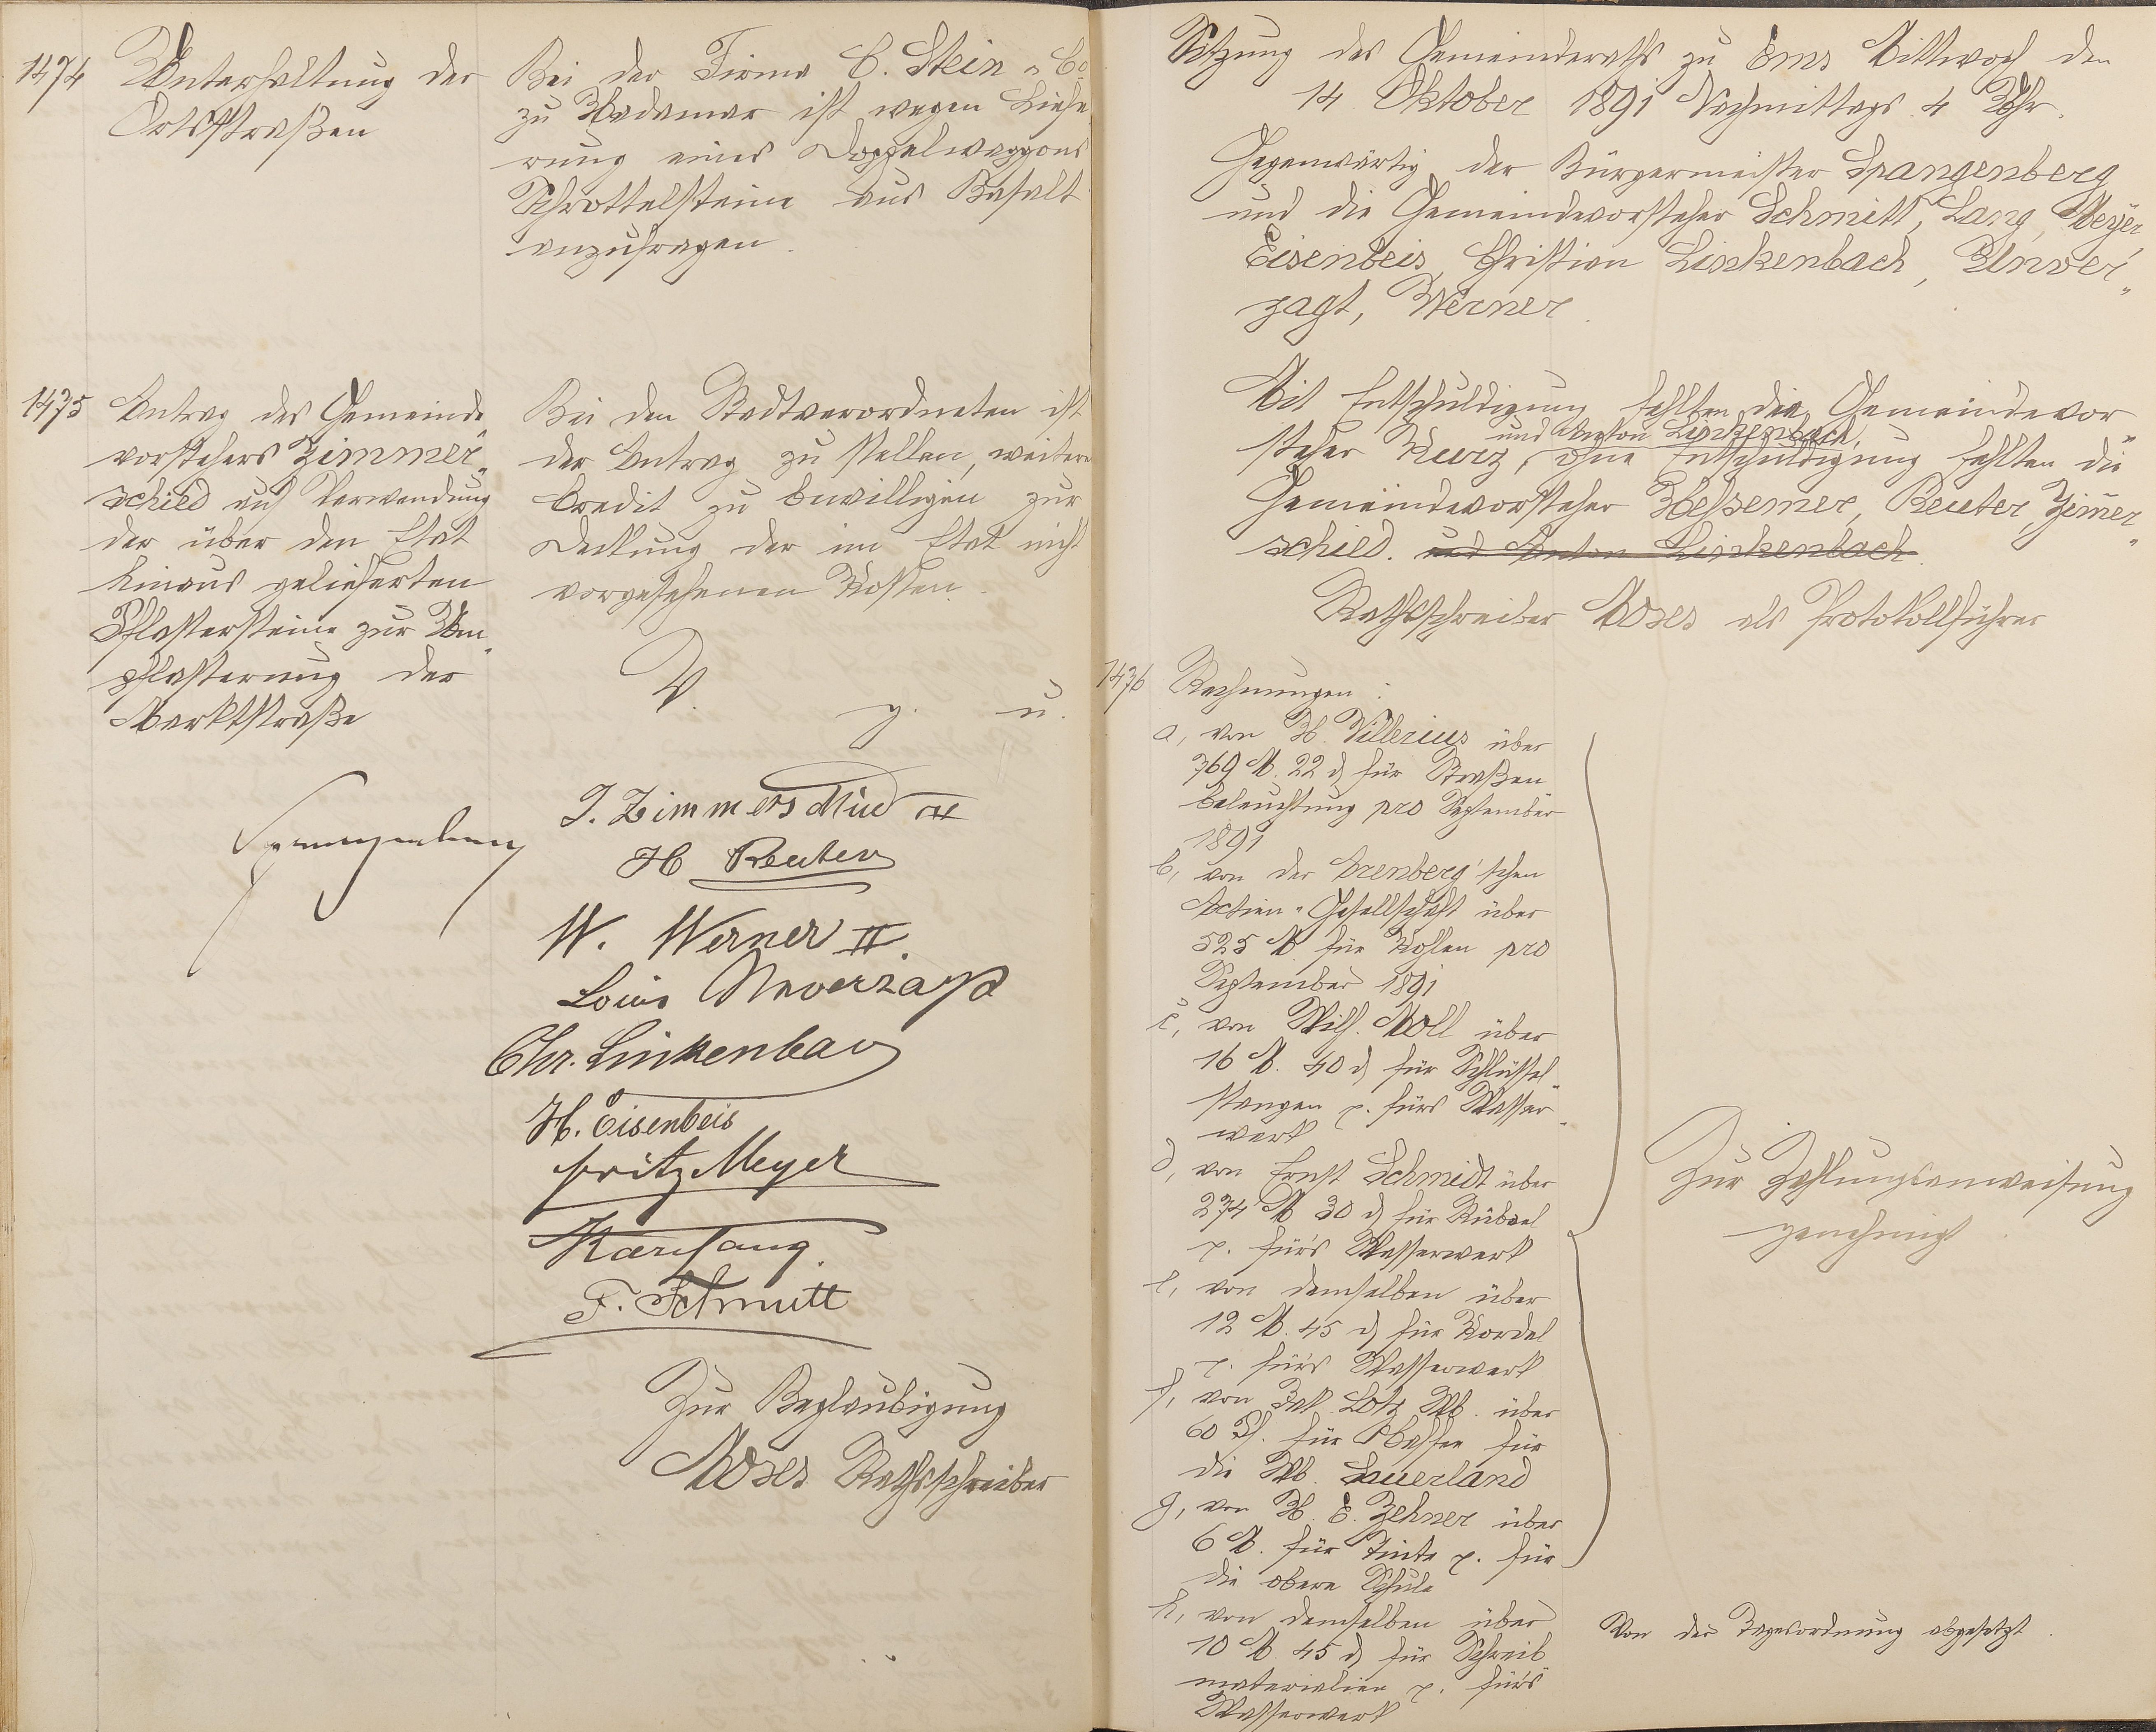 1474 Unterhaltung der
Ortsstraßen
Bei der Firma C. Stein & Co
zu Hadamar ist wegen Liefe
rung eines Doppelwaggons
Schrottelsteine aus Basalt
anzufragen.
1475 Antrag des Gemeinde
vorstehers Zimmer„
schied auf Verwendung
der über den Etat
hinaus gelieferten
Pflastersteine zur Um„
pflasterung der
Marktstraße
Bei den Stadtverordneten ist
der Antrag zu stellen, weitere
Credit zu bewilligen zur
Deckung der im Etat nicht
vorgesehenen Kosten.
V. g. u.
Spangenberg
J. Zimmerschied II
H Reuter
W. Werner II.
Louis Unverzagt
Chr. Linkenbach
H. Eisenbeis
Fritz Meyer
Karl Lang.
F. Schmitt
Zur Beglaubigung
Moses Rathsschreiber
Sitzung des Gemeinderaths zu Ems Mittwoch den
14 Oktober 1891 Nachmittags 4 Uhr.
Gegenwärtig der Bürgermeister Spangenberg
und die Gemeindevorsteher Schmitt, Lang, Meyer,
Eisenbeis, Christian Linkenbach, Unver„
zagt, Werner.
Mit Entschuldigung fehlten die Gemeindevor
und Anton Linkenbach,
steher Kurz, ohne Entschuldigung fehlten die
Gemeindevorsteher Hessemer, Reuter, Zimer„
schied. und Anton Linkenbach.
Rathsschreiber Moses als Protokollführer
1476 Rechnungen:
a, von H. Villerius über
769 M. 22 d für Straßen
beleuchtung pro September
1891
b, von der Arenberg'schen
Actien„Gesellschaft über
525 M. für Kohlen pro
September 1891
c, von Wilh. Moll über
16 M. 40 d für Schlüssel„
stangen p. fürs Wasser„
werk
d, von Ernst Schmidt über
274 M 30 d für Rüböel
p. für's Wasserwerk
e, von demselben über
12 M. 45 d für Kordel
p. für's Wasserwerk
f, von Jak. Lotz Wb. über
60 Pf. für für
die Wb. Sauerland
g, von H. E. Zehner über
6 M. für Tinte p. für
die obere Schule
Zur Zahlungsanweisung
genehmigt.
h, von demselben über
10 M. 45 d für Schreib
materialien p. für's
Wasserwerk
Von der Tagesordnung abgesetzt.